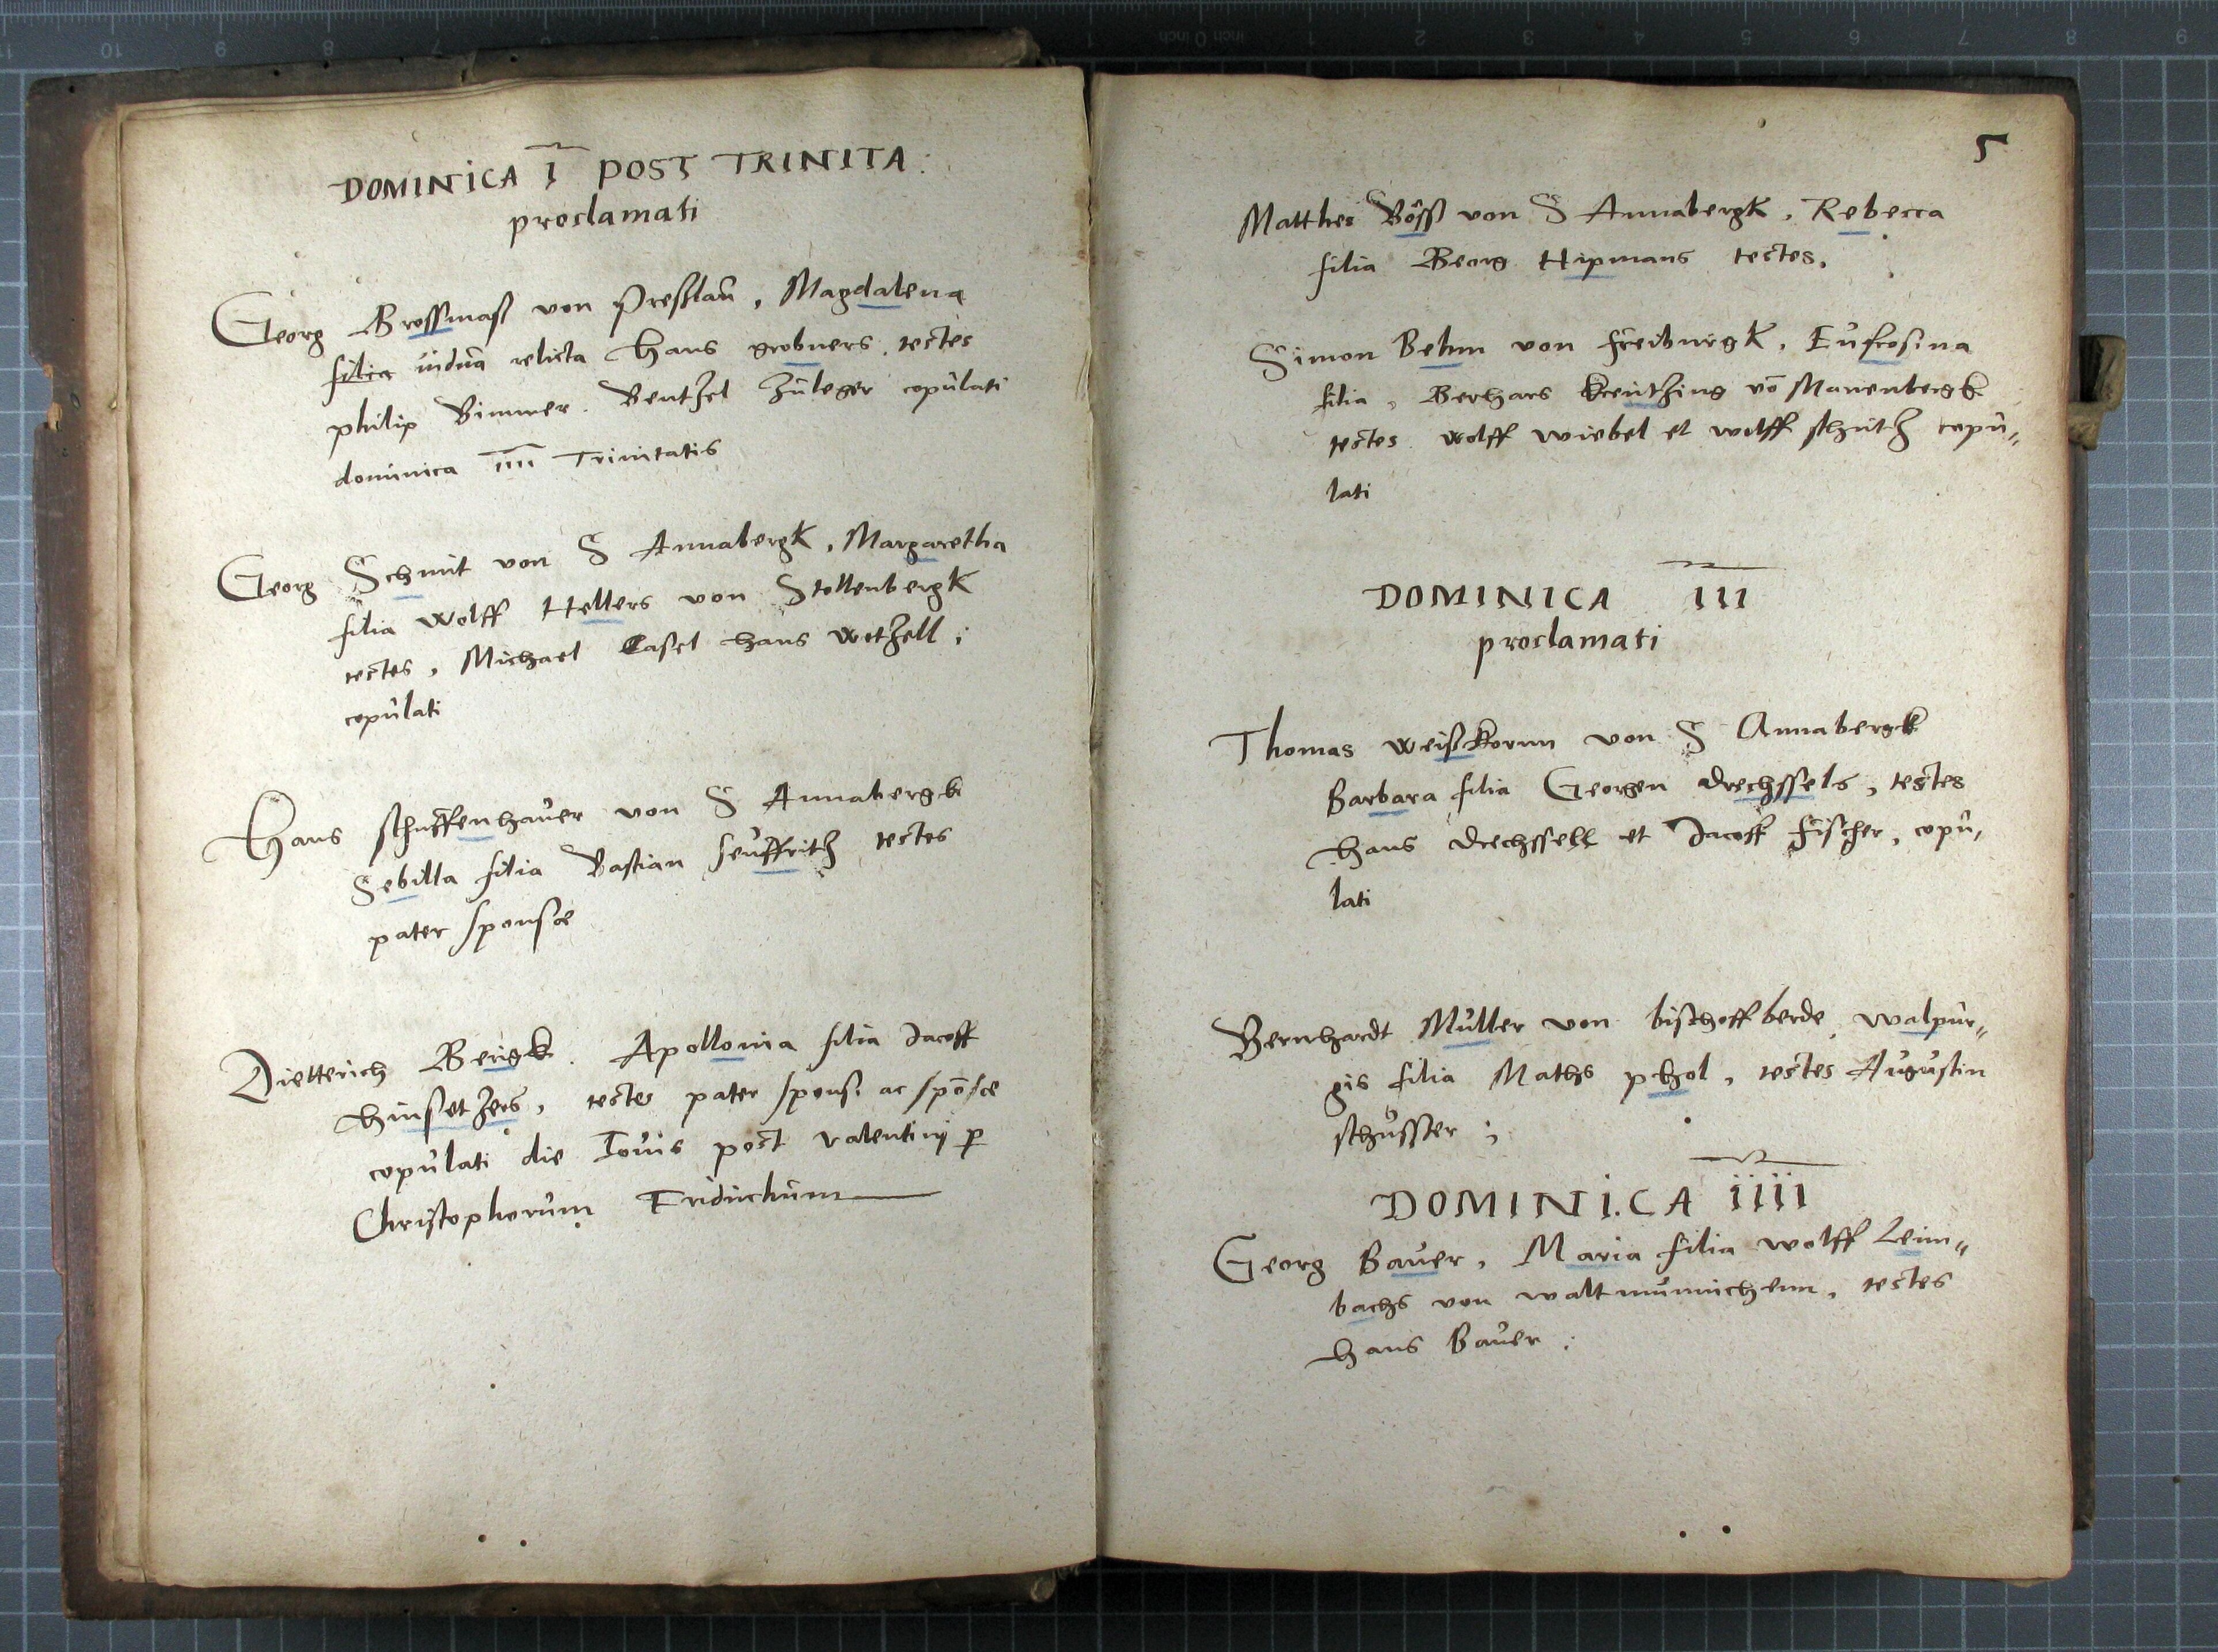 DOMINICA I POST TRINITA:
proclamati
Georg Brossmaß von Preßlau, Magdalena
filia uidua relicta Hans grobners, testes
philip Bimmer. Bentzel Züleger copulati
dominica IIII Trinitatis
Georg Schmit von S Annabergk, Margaretha
filia Wolff Hellers von Stollenbergk
testes, Michael Casel hans wetzell;
copulati
Hans schuffenhauer von S Annabergk
Sebilla filia Bastian seuffritz testes
pater sponsæ
Dietterich Bergk. Apollonia filia Jacoff
hinsetzers, testes pater sponsi ac spōsæ
copulati die Iouis post valentinj p
Christophorum Fridirichum
5
Matthes Böss von S Annabergk, Rebecca
filia Georg Hipmans testes.
Simon Behm von Freiburgk, Eufrosina
filia, Gerhars kreutzing vō Marienbergk
testes wolff wiebel et wolff schütz copu„
lati
DOMINICA III
proclamati
Thomas weißkornn von S Annabergk
Barbara filia Georgen drechssels, testes
hans drechssell et Jacoff Fischer, copu„
lati
Bernhardt Müller von bischoffberde, walpur„
gis filia Maths pkol, testes Augustin
schusster;
DOMINICA IIII
Georg Bauer, Maria filia wolff Leim„
bachs von waltmunnichenn, testes
hans Bauer;